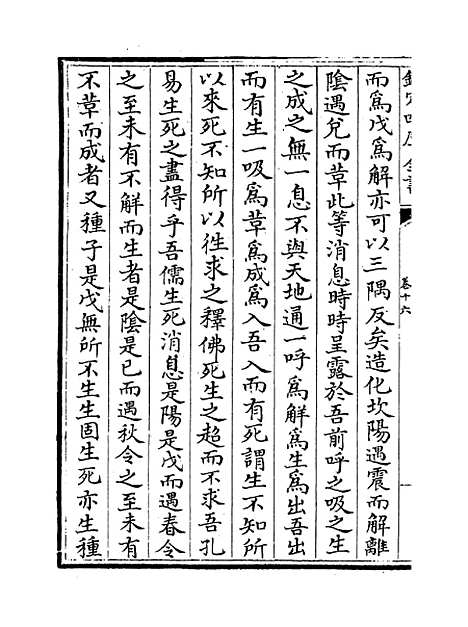 欽定四庫全書
卷十六
而為戊為解亦可以三隅反矣造化坎陽遇震而解離
陰遇兌而草此等消息時時呈露於吾前呼之吸之生
之成之無一息不與天地通一呼為解為生為出吾出
而有生一吸為草為成為入吾入而有死謂生不知所
以來死不知所以徃求之釋佛死生之超而不求吾孔
易生死之盡得乎吾儒生死消息是陽是戊而遇春令
之至未有不解而生者是陰是已而遇秋令之至未有
不草而成者又種子是戊無所不生生固生死亦生種